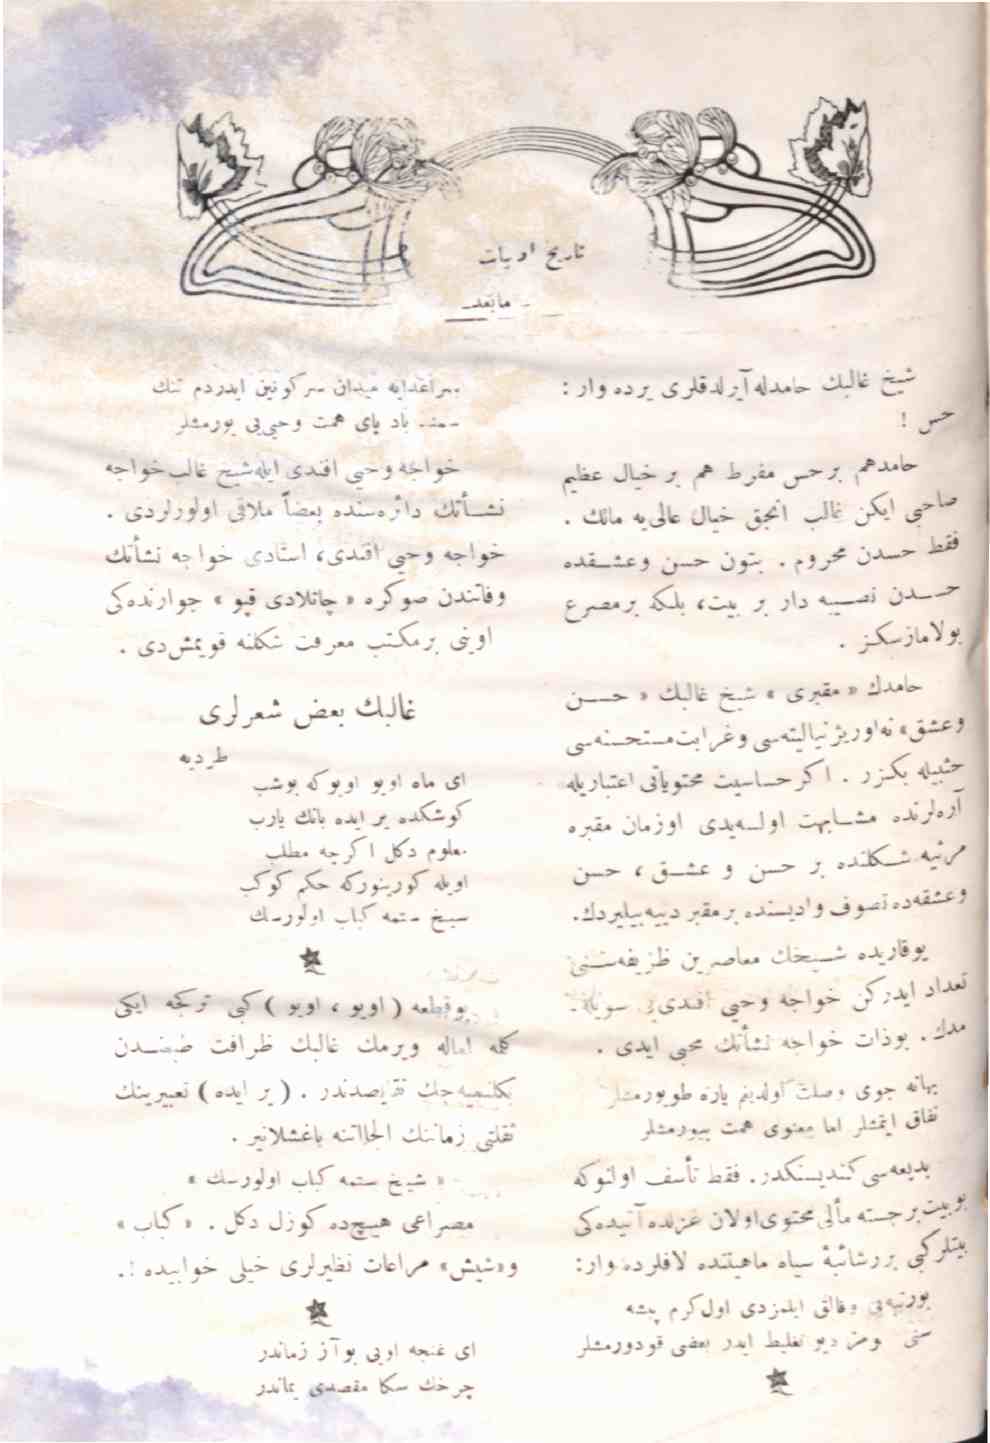 تاریخ ادبیات
ـ مابعد ـ
شیخ غالبك حامدله آیرلدقلری یرده وار :
حس !
حامدهم بر حس مفرط هم بر خیال عظیم
صاحبی ایكن غالب انجق خیال عالی‌یه مالك .
فقط حسدن محروم . بتون حسن وعشقده
حسدن نصیبه دار بر بیت، بلكه بر مصرع
بولامازسكز .
حامدك « مقبری » شیخ غالبك « حسن
وعشق » نه اوریژنیالیته‌سی وغرابت مستحسنه‌سی
حیثیله بكزر . اكر حساسیت محتویاتی اعتباریله
آره‌لرنده مشابهت اولسه‌یدی اوزمان مقبره
مرثیه شكلنده بر حسن و عشق ، حسن
وعشقه‌ده تصوف وادیسنده بر مقبر دییه‌بیلیردك.
یوقاریده شیخك معاصرین ظریفه‌سنی
تعداد ایدركن خواجه وحیی افندی‌یی سویله‌
مدك . بوذات خواجه نشأتك محبی ایدی .
بهانه جوی وصلت اولدیغم یاره طویورمشلر
نفاق ایتمشلر اما معنوی همت بیورمشلر
بدیعه‌سی كندیسنكدر. فقط تأسف اولنوركه
بوبیت برجسته مألی محتوی اولان غزلده آتیده‌كی
بیتلر كبی بررشائبۀ سیاه ماهیتنده لافلرده وار:
بورتبه‌یی وفالق ایلمزدی اول كرم پیشه
سنی دیو تغلیط ایدر بعضی قودورمشلر
میدان سركونین ایدردم تنك
باد پای همت وحیی‌یی یورمشلر
خواجه وحیی افندی ایله شیخ غالب خواجه
نشأتك دائره‌سنده بعضاً ملاقی اولورلردی .
خواجه وحیی افندی، استادی خواجه نشأتك
وفاتندن صوكره « چاتلادی قپو » جوارنده‌كی
اوینی بر مكتب معرفت شكلنه قویمش‌دی .
غالبك بعض شعرلری
طردیه
ای ماه اویو اویوكه بوشب
كوشكده یر ایده بانك یارب
معلوم دكل اكرچه مطلب
اویله كورینوركه حكم كوكب
سیخ ستمه كباب اولورسك
بوقطعه ( اویو ، اویو ) كبی تركجه ایكی
كلمه اماله ویرمك غالبك ظرافت طبعندن
بكلنمیه‌جك نقیصدندر . ( یر ایده ) تعبیرینك
ثقلتی زماننك الجاآتنه باغشلانیر .
« شیخ ستمه كباب اولورسك »
مصراعی هیچ‌ده كوزل دكل . « كباب »
و «شیش» مراعات نظیرلری خیلی خوابیده !.
ای غنجه اویی بو آز زماندر
چرخك سكا مقصدی یماندر